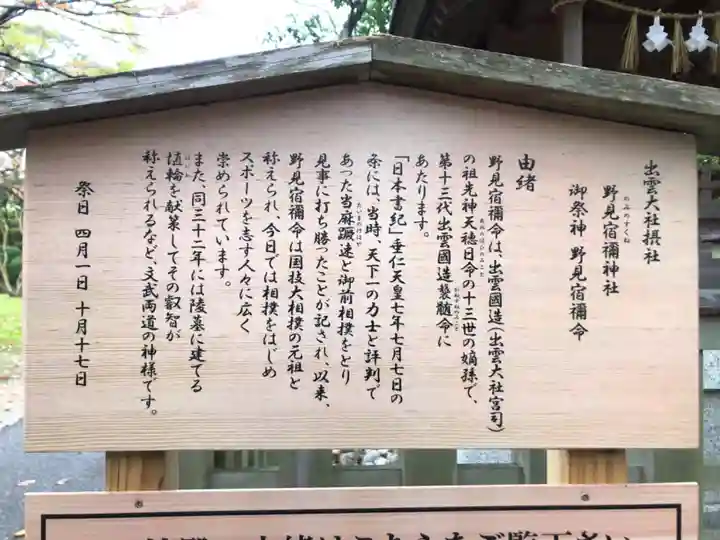 出雲大社摂社
野見宿禰神社
のみのすくね
御祭神 野見宿禰命
由緒
野見宿禰命は、出雲國造(出雲大社宮司)
の祖先神天穂日命の十三世の嫡孫で、
あめのほひのみこと
第十三代出雲國造襲髄命に
あたります。
「日本書紀」垂仁天皇七年七月七日の
条には、当時、天下一の力士と評判で
あった当麻蹶速と御前相撲をとり
たいまのけはや
見事に打ち勝ったことが記され、以来、
野見宿禰命は国技大相撲の元祖と
称えられ、今日では相撲をはじめ
スポーツを志す人々に広く
崇められています。
また、同三十二年には陵墓に建てる
埴輪を献策してその叡智が
はにわ
称えられるなど、文武両道の神様です。
祭日 四月一日 十月十七日